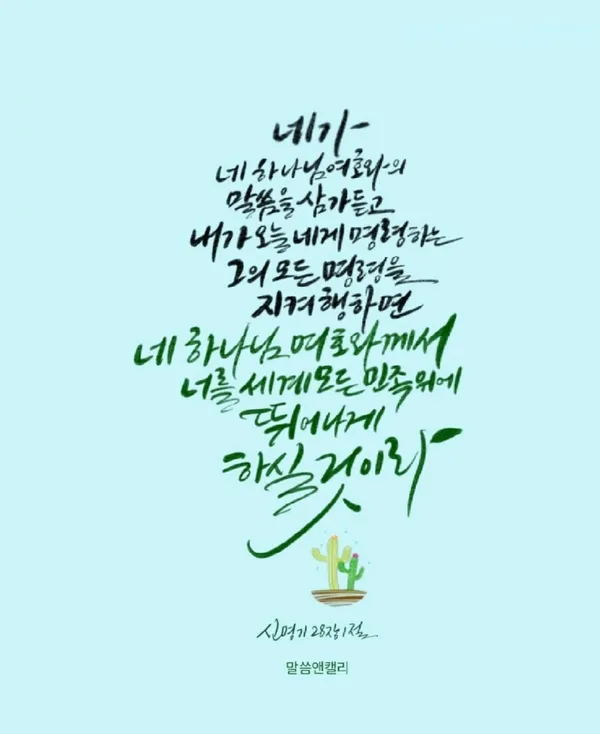 네가
네 하나님 여호와의
말씀을 삼가 듣고
내가 오늘 네게 명령하는
그의 모든 명령을
지켜 행하면
네 하나님 여호와께서
너를 세계 모든 민족 위에
뛰어나게
하실 것이라
신명기 28장 1절
말씀앤캘리